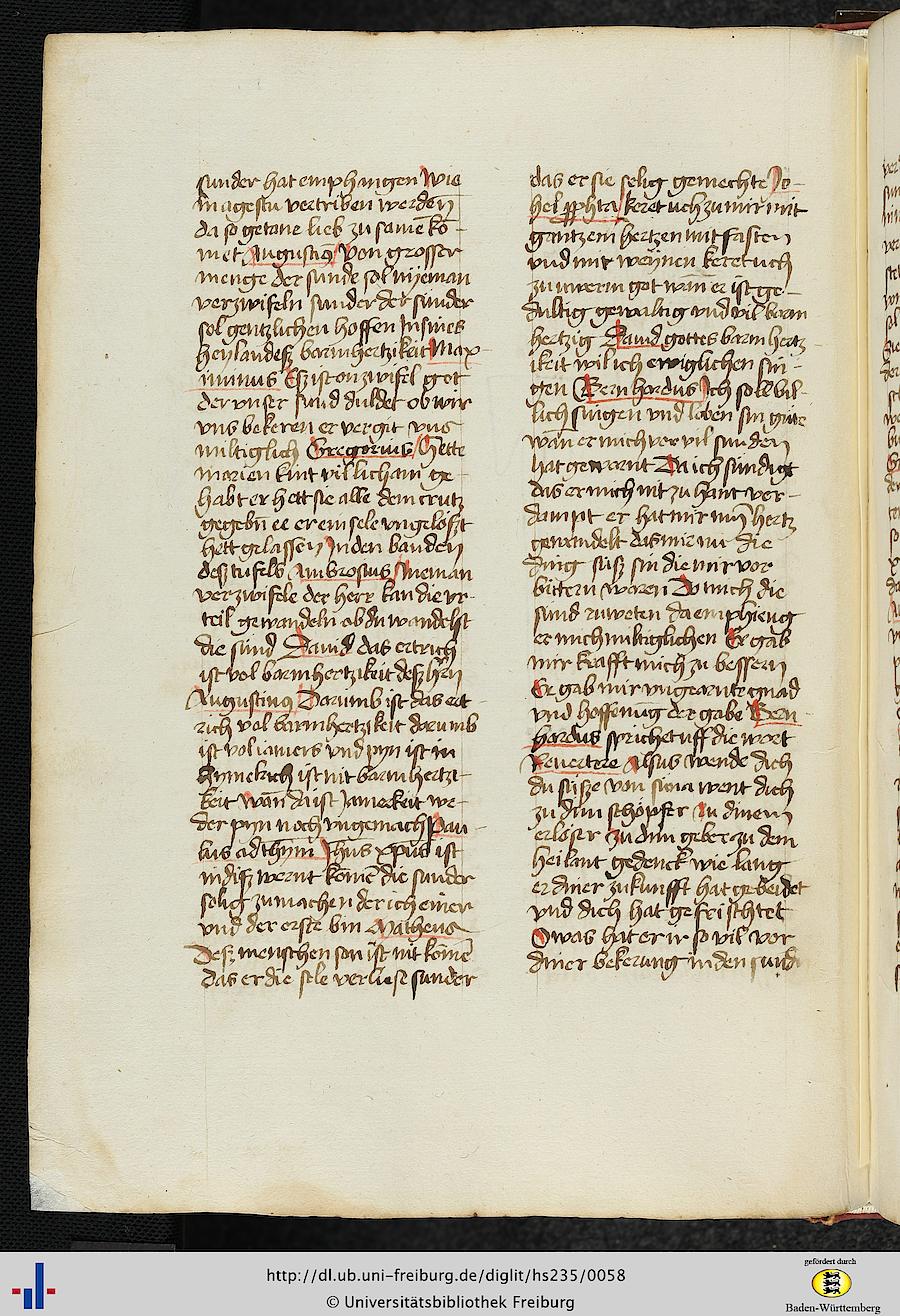 sunder hat emphangen Wie
magestu vertriben werden
da so getane lieb zu same ko-
met Augustin9 Von grosser
menge der sunde sol nyeman
verzwifeln sunder der sunder
sol gentzlichen hoffen In sines
heylandesz barmhertzikeit Max
iminus Esz ist on zwifel got
der vnser sund duldet ob wir
vns bekeren er vergit vns
miltiglich Gregorius Hette
marien kint vil licham ge-
habt er hett sie alle dem crutz
gegebn ee er ein sele vngelöszt
hett gelassen In den banden
desz tufels Ambrosius Nieman
verzwifele der herr kan die vr-
teil gewandeln ob du wandelst
die sund Dauid das ertrich
ist vol barmhertzikeit desz hrn
Augustin9 Dorumb ist das ert
rich vol barmhertzikeit dorumb
ist vol iamers vnd pyn ist im
hymelrich ist nit barmhertzi-
keit wan da ist Jamerkeit we-
der pyn noch vngemach Pau
lus ad thym Jhus xpus ist
in disz wernt kome die sunder
selig zu machen der ich einer
vnd der erste bin Matheus
Desz menschen son ist nit kome
das er die sele verliesz sunder
das er sie selig gemechte Jo-
hel ppheta keret uch zu mir mit
gantzem hertzen mit fasten
vnd mit weynen keret uch
zu uwerm got wan er ist ge-
dultig gewaltig vnd vil barm
hertzig Dauid gottes barmhertz-
ikeit wil ich ewiglichen sin-
gen Bernhardus Ich soll bil-
lich singen vnd loben sin güte
wan er mich vor vil sunden
hat gewarnt Da ich sundigt
das er mich nit zu hant ver-
dampt er hat mir min hertz
gewandelt das mir nu die
ding süsz sin die mir vor
bittern woren Do mich die
sund ruweten da emphieng
er mich miltiglichen Er gab
mir krafft mich zu bessern
Er gab mir vngearnte gnad
vnd hoffenug der gabe Bern
hardus sprichet uff die wort
Reuertere Alsus wende dich
du süsze von sina went dich
zu dim schöpfer zu dinem
erlöser zu dim geber zu dem
heilant gedenck wie lang
er diner zukunfft hat gebeidet
vnd dich hat gefristhtet
O was hat er ir so vil vor
diner bekerung in den sund
http://dl.ub.uni-freiburg.de/diglit/hs235/0058
© Universitätsbibliothek Freiburg
gefördert durch
Baden-Württemberg